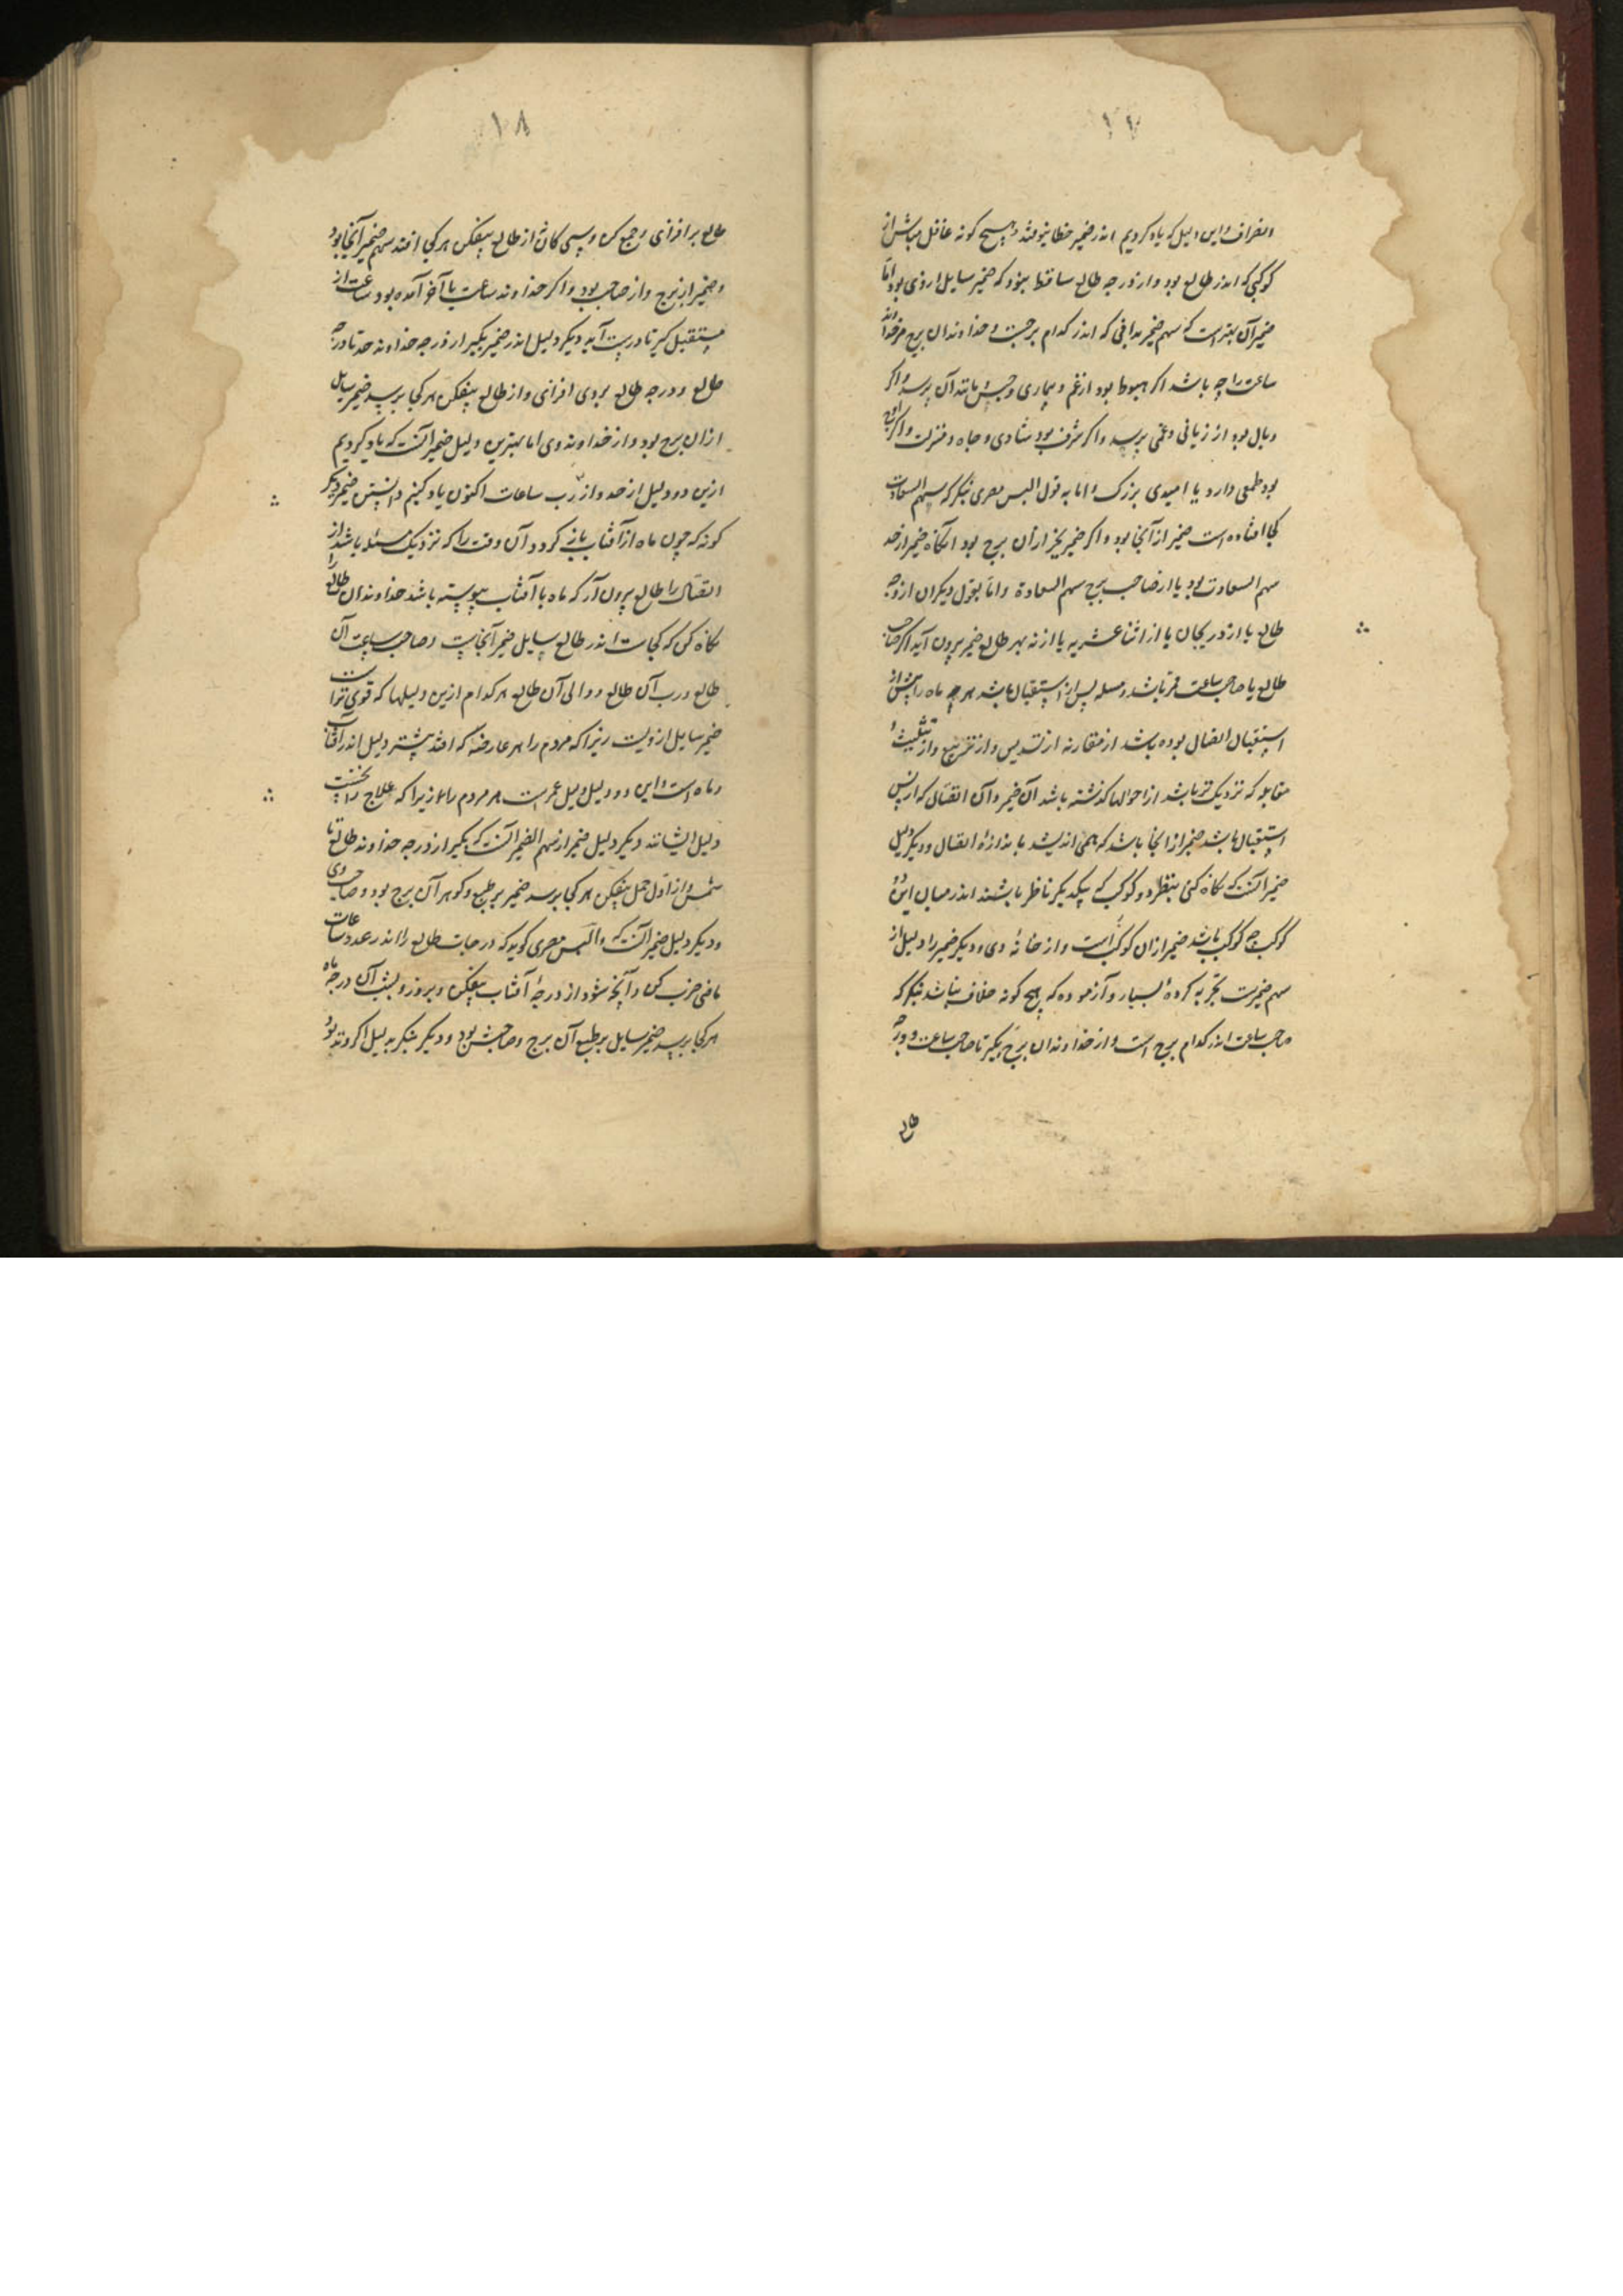 ۱۷
وانصراف و این دلیل که یاد کردیم اندر ضمیر خطا نیوفتد و هیچ گونه غافل مباش از
کوکبی که اندر طالع بود و از درجه طالع ساقط نبود که ضمیر سایل از وی بود اما
ضمیر آن بهتر است که سهم ضمیر بدانی که اندر کدام برجست و خداوندان برج مر خداوند
ساعت را چه باشد اگر هبوط بود از غم و بیماری و حبس و مانند آن پرسد و اگر
وبال بود از زیانی و غمی پرسد و اگر شرف بود شادی و جاه و منزلت و اگر اوج
بود طمعی دارد یا امیدی بزرگ و اما به قول والیس مصری بنگر که سهم السعادت
کجا افتاده است ضمیر از آنجا بود و اگر ضمیر بخیر ازان برج بود انگاه ضمیر از حد
سهم السعادت بود یا از صاحب برج سهم السعادة و اما بقول دیگران از وجه
طالع یا از دریجان یا از اثناعشریه یا از نه بهر طالع ضمیر برون آید اگر صاحب
طالع یا صاحب ساعت قمر باشد و مسله پس از استقبال باشد هرچه ماه را پیش از
استقبال اتصال بوده باشد از مقارنه از تسدیس و از تربیع و از تثلیث و
مقابله که نزدیک تر باشد از احوالها گذشته باشد آن ضمیر و آن اتصال که از پس
استقبال باشد ضمیر از انجا باشد که همی اندیشد با ندازهٔ اتصال و دیگر دلیل
ضمیر آنست که نگاه کنی بنظر دو کوکب که بیکدیگر ناظر باشند اندر میان این دو
کوکب چه کوکب باشد ضمیر ازان کوکب است و از خانهٔ وی و دیگر ضمیر را دلیل از
سهم ضمیرست تجربه کردهٔ بسیار و آزموده که هیچ گونه خلاف نباشد بنگر که
صاحب ساعت اندر کدام برج است و از خداوندان برج بگیر تا صاحب ساعت و درجه
طالع
۱۸
طالع بر افزای و جمع کن و سی کان از طالع بیفکن هر کجا افتد سهم ضمیر آنجا بود
و ضمیر از برج و از صاحب بود و اگر خداوند ساعت با آخر آمده بود ساعت از
مستقبل گیر تا درست آید و دیگر دلیل اندر ضمیر بگیر از درجه خداوند حد تا درجه
طالع و درجه طالع بروی افزای و از طالع بیفکن هر کجا برسد ضمیر سایل
ازان برج بود و از خداوند وی اما بهترین دلیل ضمیر آنست که یاد کردیم
ازین دو دلیل از حد و از رب ساعات اکنون یاد کنیم دانستن ضمیر دیگر
گونه که چون ماه از آفتاب باز گردد آن وقت را که نزدیک مسئله باشد از
اتصال را طالع برون آر که ماه با آفتاب پیوسته باشد خداوندان طالع را
نگاه کن که کجاست اندر طالع سایل ضمیر آنجاست و صاحب ساعت آن
طالع و رب آن طالع و والی آن طالع هر کدام ازین دلیلها که قوی تر است
ضمیر سایل از ویست زیرا که مردم را هر عارضه که افتد بیشتر دلیل اندر آفتاب
و ماه است و این دو دلیل دلیل عمرست هر مردم را زیرا که علاج را نخست
دلیل ایشانند دیگر دلیل ضمیر از سهم الضمیر آنست که بگیر از درجه خداوند طالع تا
شمس و از اول حمل بیفکن هر کجا برسد ضمیر بر طبع و گوهر آن برج بود و صاحب وی
و دیگر دلیل ضمیر آنست که والیس مصری گوید که درجات طالع را اندر عدد ساعات
ماضی ضرب کن و آنچه شود از درجهٔ آفتاب بیفکن و بروز و بشب آن درجه ماه
هر کجا برسد ضمیر سایل بر طبع آن برج و صاحبش بود و دیگر بنگر بدلیل اگر وتد بود